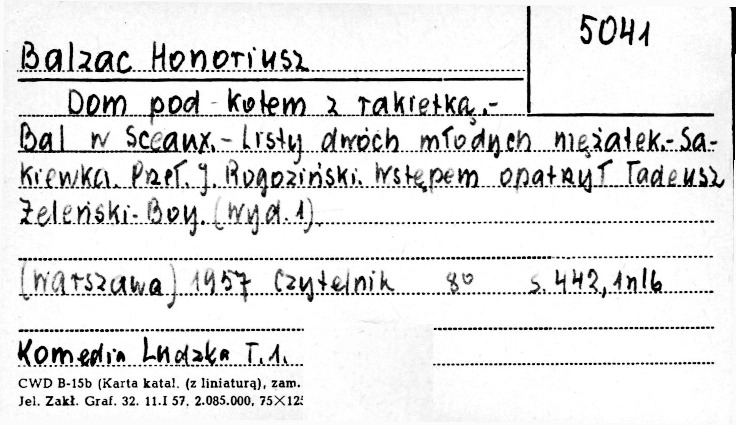 5041
Balzac Honoriusz
Dom pod kotem z rakietką.-
Bal w Sceaux.- Listy dwóch młodych mężatek.- Sa-
kiewka. Przeł. J. Rogoziński. Wstępem opatrzył Tadeusz
Żeleński-Boy. (Wyd. 1).
(Warszawa) 1957 Czytelnik 8° s. 442, 1nlb
Komedia Ludzka T. 1.
CWD B-15b (Karta katal. (z liniaturą), zam.
Jel. Zakł. Graf. 32. 11.I 57. 2.085.000, 75×125